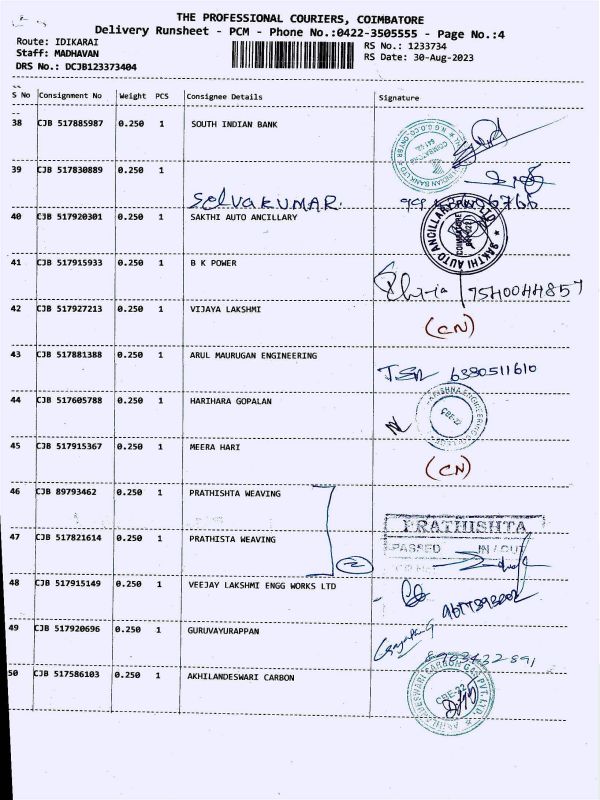 THE PROFESSIONAL COURIERS, COIMBATORE
Delivery Runsheet - PCM - Phone No.:0422-3505555 - Page No.:4
Route: IDIKARAI
RS No.: 1233734
Staff: MADHAVAN
RS Date: 30-Aug-2023
DRS No.: DCJB123373404
S No Consignment No Weight PCS Consignee Details Signature
38 CJB 517885987 0.250 1 SOUTH INDIAN BANK
39 CJB 517830889 0.250 1
SELVAKUMAR.
40 CJB 517920301 0.250 1 SAKTHI AUTO ANCILLARY
SAKTHI AUTO ANCILLARY PVT LTD
COIMBATORE
41 CJB 517915933 0.250 1 B K POWER
7540044857
42 CJB 517927213 0.250 1 VIJAYA LAKSHMI
(CN)
43 CJB 517881388 0.250 1 ARUL MAURUGAN ENGINEERING
6380511610
44 CJB 517605788 0.250 1 HARIHARA GOPALAN
CBE-22
45 CJB 517915367 0.250 1 MEERA HARI
(CN)
46 CJB 89793462 0.250 1 PRATHISHTA WEAVING
PRATHISHTA
47 CJB 517821614 0.250 1 PRATHISTA WEAVING
PASSED IN / OUT
2
48 CJB 517915149 0.250 1 VEEJAY LAKSHMI ENGG WORKS LTD
49 CJB 517920696 0.250 1 GURUVAYURAPPAN
50 CJB 517586103 0.250 1 AKHILANDESWARI CARBON
AKHILANDESWARI CARBON GAS PVT. LTD.
CBE-22